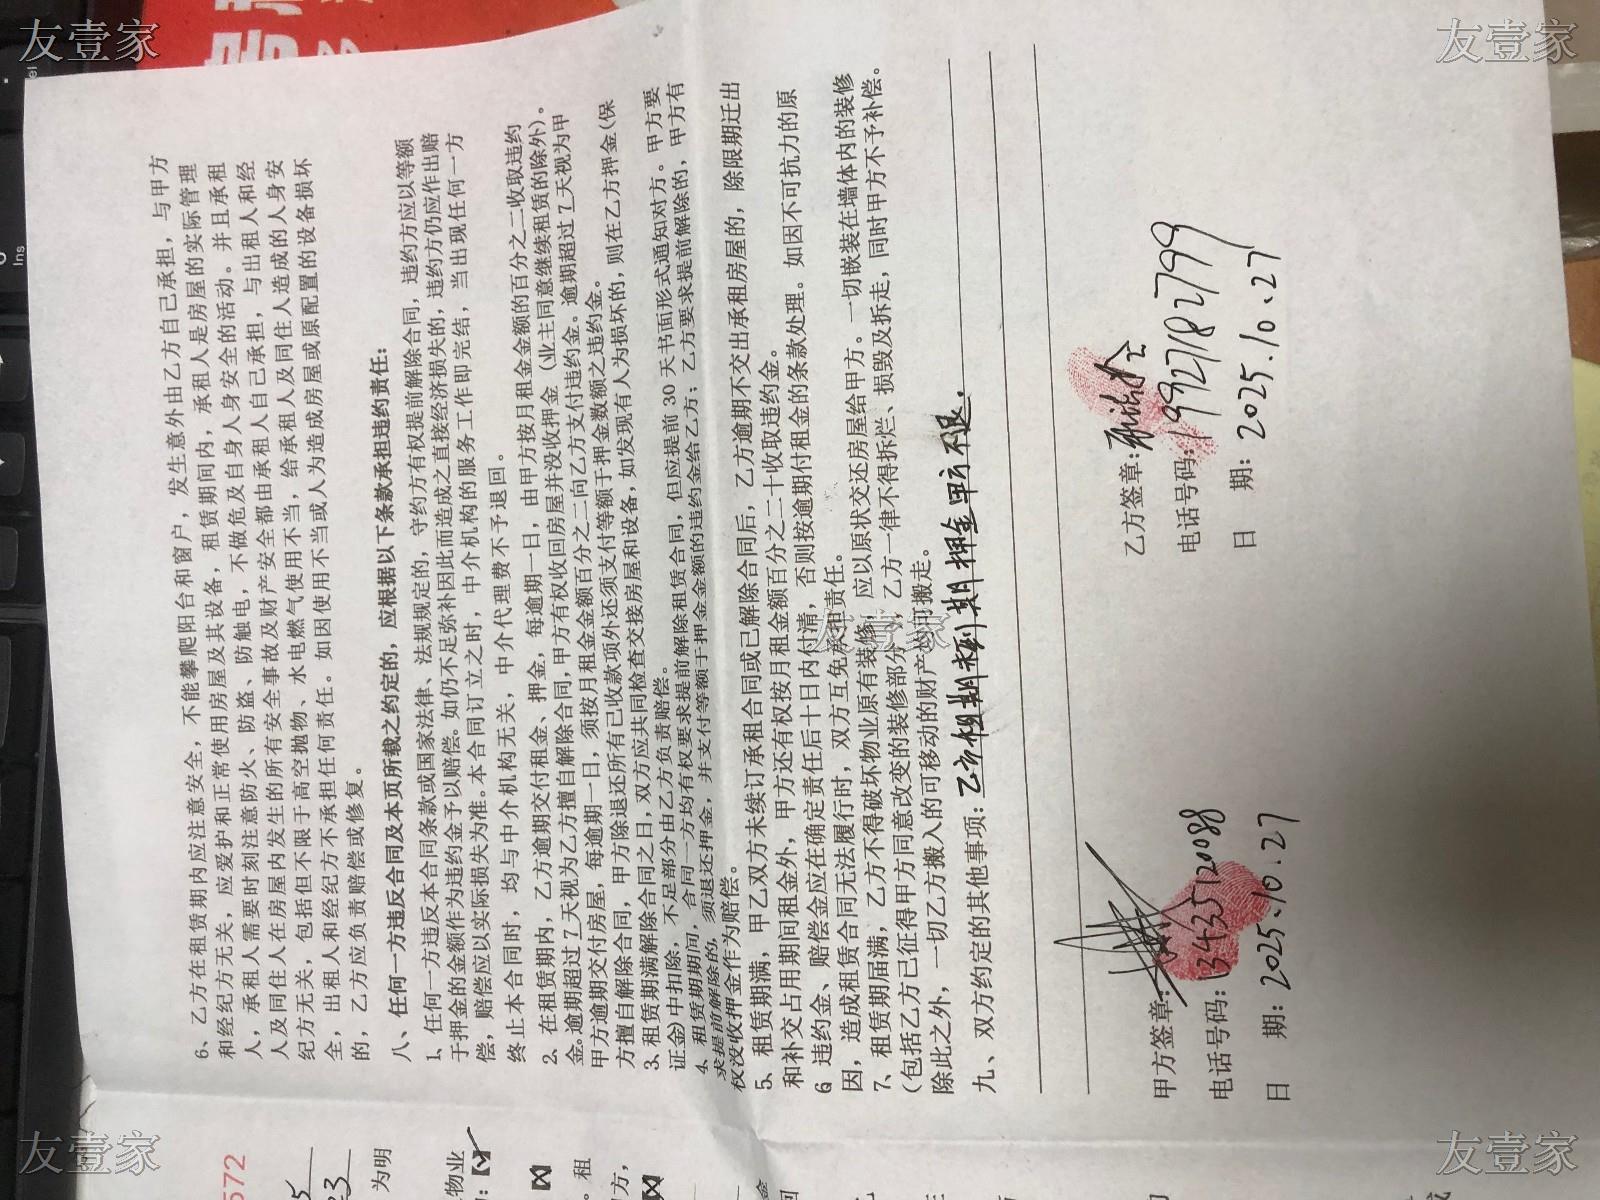 6、乙方在租赁期内应注意安全，不能攀爬阳台和窗户，发生意外由乙方自己承担，与甲方
和经纪方无关，应爱护和正常使用房屋及其设备，租赁期间内，承租人是房屋的实际管理
人，承租人需要时刻注意防火、防盗、防触电，不做危及自身人身安全的活动。并且承租
人及同住人在房屋内发生的所有安全事故及财产安全都由承租人自己承担，与出租人和经
纪方无关，包括但不限于高空抛物、水电燃气使用不当，给承租人及同住人造成的人身安
全，出租人和经纪方不承担任何责任。如因使用不当或人为造成房屋或原配置的设备损坏
的，乙方应负责赔偿或修复。
八、任何一方违反合同及本页所载之约定的，应根据以下条款承担违约责任：
1、任何一方违反本合同条款或国家法律、法规规定的，守约方有权提前解除合同，违约方应以等额
于押金的金额作为违约金予以赔偿。如仍不足弥补因此而造成之直接经济损失的，违约方仍应作出赔
偿，赔偿应以实际损失为准。本合同订立之时，中介机构的服务工作即完结，当出现任何一方
终止本合同时，均与中介机构无关，中介代理费不予退回。
2、在租赁期内，乙方逾期交付租金、押金，每逾期一日，由甲方按月租金金额的百分之二收取违约
金。逾期超过7天视为乙方擅自解除合同，甲方有权收回房屋并没收押金（业主同意继续租赁的除外）。
甲方逾期交付房屋，每逾期一日，须按月租金金额百分之二向乙方支付违约金。逾期超过7天视为甲
方擅自解除合同，甲方除退还所有已收款项外还须支付等额于押金数额之违约金。
3、租赁期满解除合同之日，双方应共同检查交接房屋和设备，如发现有人为损坏的，则在乙方押金(保
证金)中扣除，不足部分由乙方负责赔偿。
4、租赁期期间，合同一方均有权要求提前解除租赁合同，但应提前30天书面形式通知对方。甲方要
求提前解除的，须退还押金，并支付等额于押金金额的违约金给乙方；乙方要求提前解除的，甲方有
权没收押金作为赔偿。
5、租赁期满，甲乙双方未续订承租合同或已解除合同后，乙方逾期不交出承租房屋的，除限期迁出
和补交占用期间租金外，甲方还有权按月租金额百分之二十收取违约金。
6 违约金、赔偿金应在确定责任后十日内付清，否则按逾期付租金的条款处理。如因不可抗力的原
因，造成租赁合同无法履行时，双方互免承担责任。
7、租赁期届满，乙方不得破坏物业原有装修，应以原状交还房屋给甲方。一切嵌装在墙体内的装修
(包括乙方已征得甲方同意改变的装修部分)，乙方一律不得拆烂、损毁及拆走，同时甲方不予补偿。
除此之外，一切乙方搬入的可移动的财产均可搬走。
九、双方约定的其他事项：乙方租期未到期押金甲方不退.
甲方签章：
电话号码：13435120088
日 期：2025.10.27
乙方签章：
电话号码：19927182799
日 期：2025.10.27
572
23
为明
物业
租
方，
金
Ins
友壹家
友壹家
友壹家
友壹家
友壹家